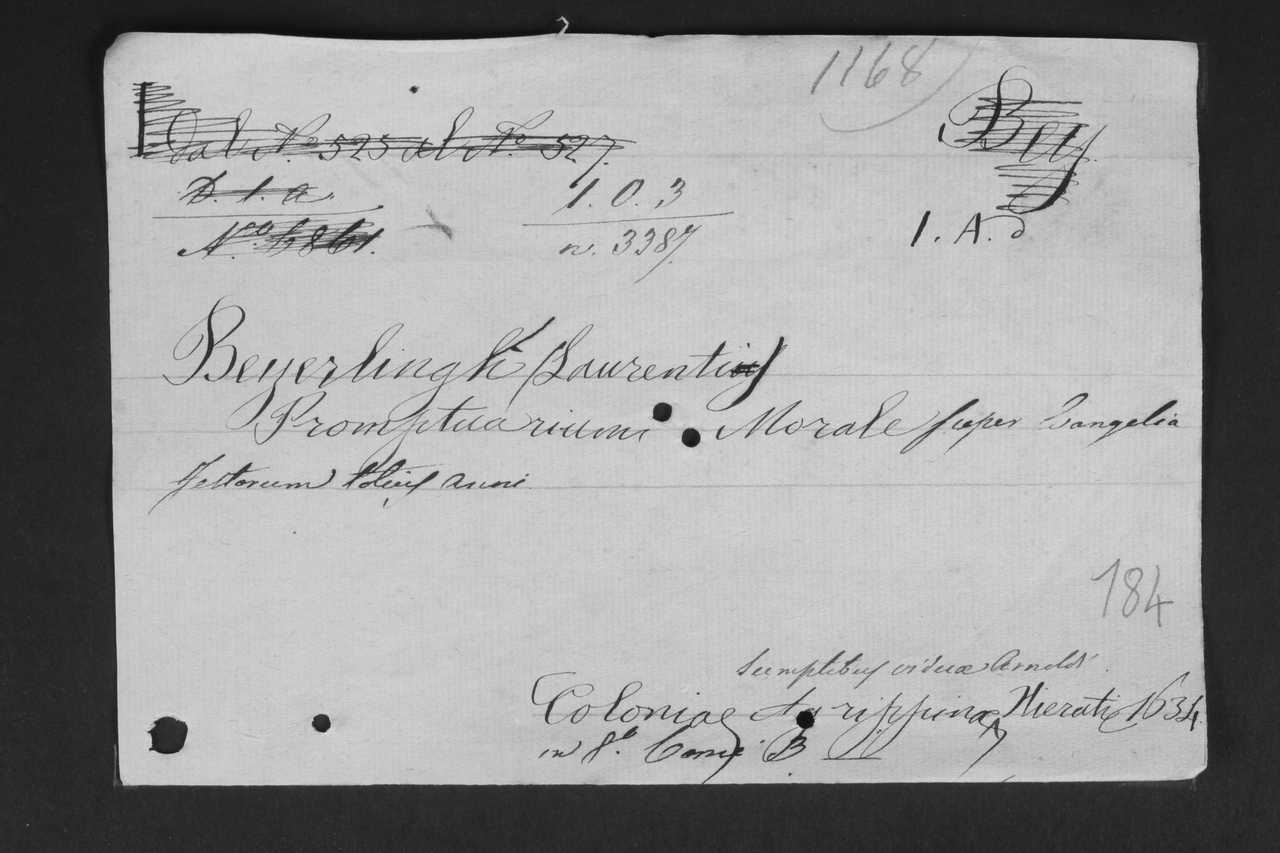 1168
Dal Nº 525 al Nº 527.
Bey
D. 1. a
1. 0. 3
Nº 6861.
n. 3387.
1. A. d
Beyerlingk (Laurentii)
Promptuarium Morale super Evangelia
festorum totius anni
184
Sumptibus viduæ Arnoldi
Coloniae Agrippinæ Hierati 1634.
in 8º Tomi 3